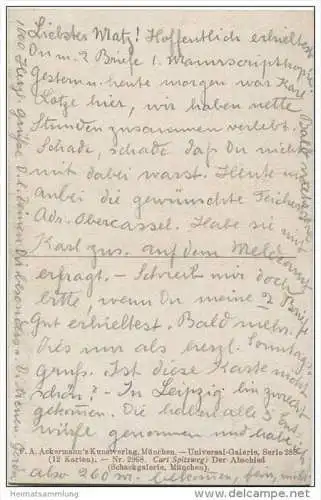 Liebster Matz! Hoffentlich erhieltest
Du m. 2 Briefe 1. Manuscriptkopie.
Gestern u. heute morgen war Karl
Lotze hier, wir haben nette
Stunden zusammen verlebt.
Schade, schade daß Du nicht
mit dabei warst. Heute nur
anbei die gewünschte
Adr. Obercassel. Habe sie mit
Karl zus. auf dem Meldeamt
erfragt. – Schreib mir doch
bitte, wenn Du meine 2 Briefe
gut erhieltest. Bald mehr.
Dies nur als herzl. Sonntags-
gruß. Ist diese Karte nicht
schön? – In Leipzig bin
gekommen. Die haben alle 5 Ent-
würfe genommen und habe
also 260 M. bekommen, fein,
F. A. Ackermann's Kunstverlag, München. — Universal-Galerie, Serie
(12 Karten). — Nr. 2968. Carl Spitzweg: Der Abschied
(Schackgalerie, München).
1000 Herzl. Grüße